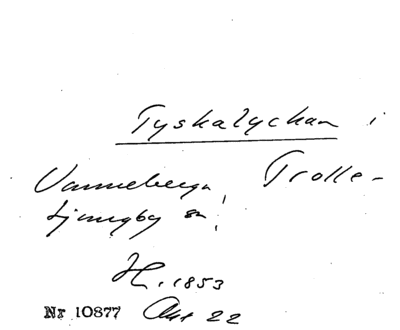 Tyskalyckan i
Vanneberga, Trolle-
Ljungby sn.
H. 1853
Nr 10877 Akt 22